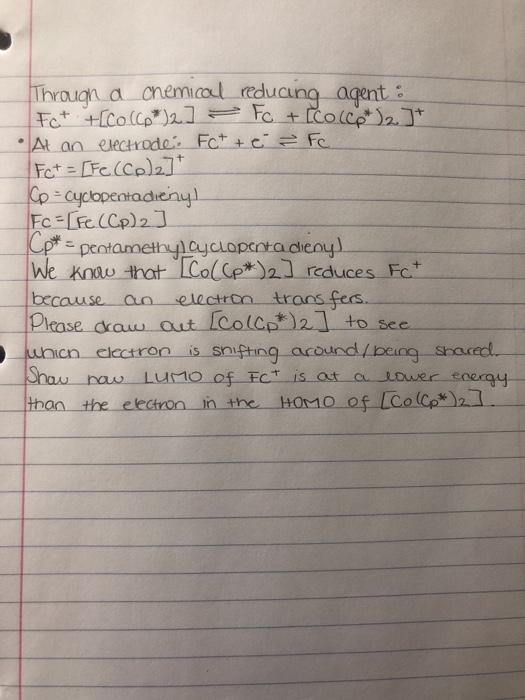 Through a chemical reducing agent:
Fc⁺ + [Co(Cp*)2] ⇌ Fc + [Co(Cp*)2]⁺
• At an electrode: Fc⁺ + e⁻ ⇌ Fc
Fc⁺ = [Fe(Cp)2]⁺
Cp = cyclopentadienyl
Fc = [Fe(Cp)2]
Cp* = pentamethylcyclopentadienyl
We know that [Co(Cp*)2] reduces Fc⁺
because an electron transfers.
Please draw out [Co(Cp*)2] to see
which electron is shifting around/being shared.
Show how LUMO of Fc⁺ is at a lower energy
than the electron in the HOMO of [Co(Cp*)2].